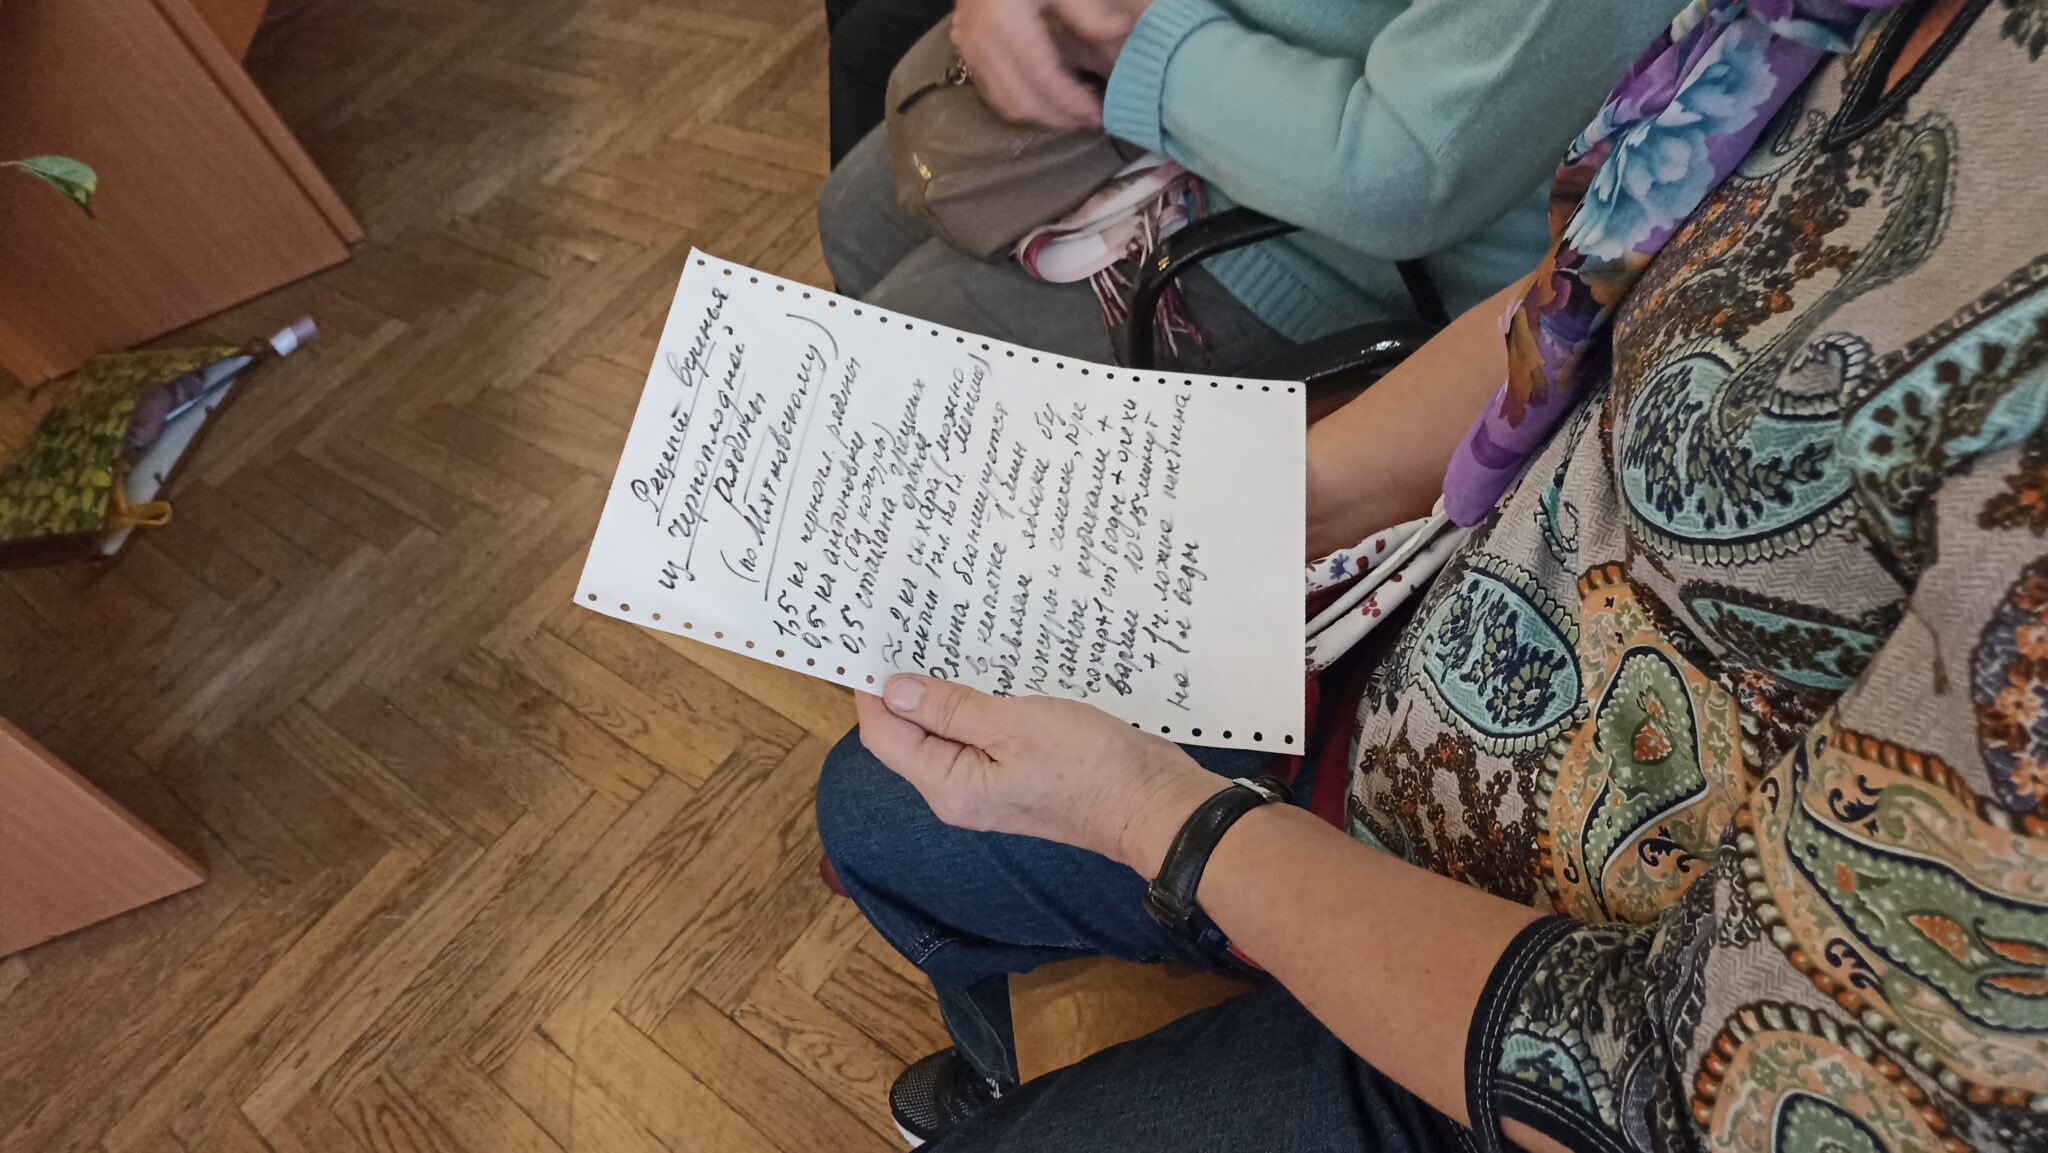 Рецепт варенья
из черноплодной
рябины
(по Мятковскому)
1,5 кг чернопл. рябины
0,5 кг антоновки
(бу кожуры)
0,5 стакана грецких
орехов
≈ 2 кг сахара (можно
пектин 1 ч.л. но 1 л меньше)
Рябина бланшируется
в кипятке 1 мин
добавляем яблоки бу
кожуры и семек,
занные кубиками +
сахар + 1 ст воды + орехи
варим 10-15 минут
+ 1 ч. ложке пектина
на 1 л воды